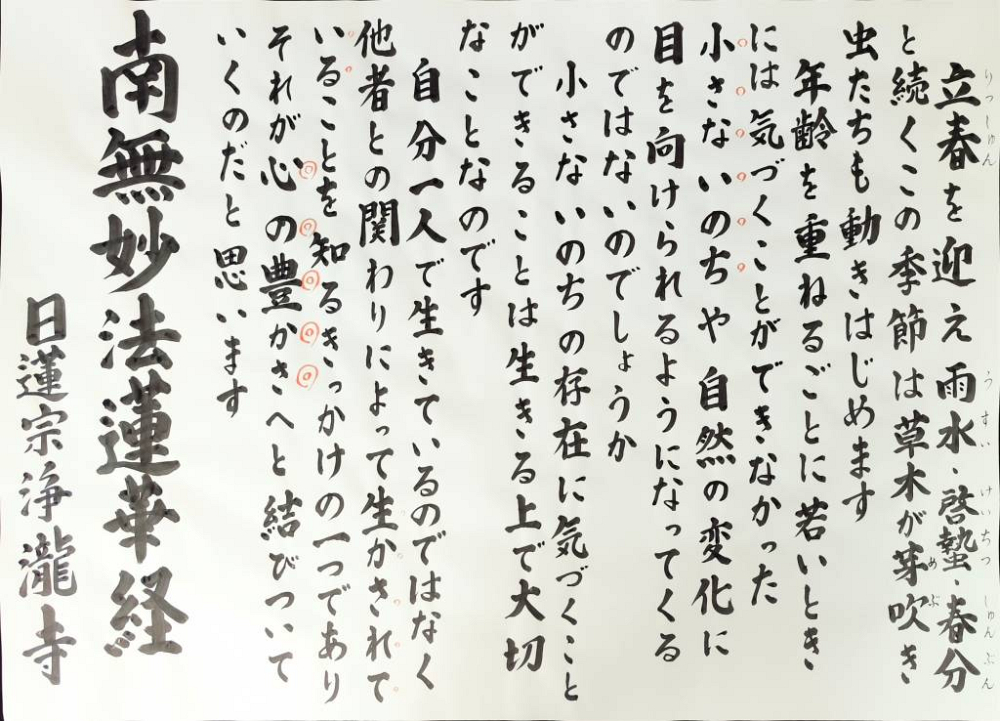 立春を迎え雨水・啓蟄・春分
りっしゅん うすい けいちつ しゅんぶん
と続くこの季節は草木が芽吹き
めぶ
虫たちも動きはじめます
年齢を重ねるごとに若いとき
には気づくことができなかった
小さないのちや自然の変化に
目を向けられるようになってくる
のではないのでしょうか
小さないのちの存在に気づくこと
ができることは生きる上で大切
なことなのです
自分一人で生きているのではなく
他者との関わりによって生かされて
いることを知るきっかけの一つであり
それが心の豊かさへと結びついて
いくのだと思います
南無妙法蓮華経
日蓮宗浄瀧寺